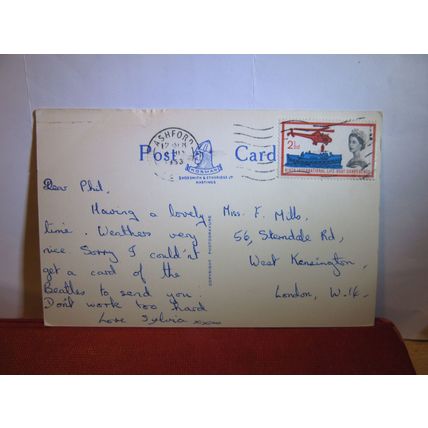 ASHFORD
1963
Post Card
NORMAN
SHOESMITH & ETHERIDGE LTD
HASTINGS
2½d
NINTH INTERNATIONAL LIFE-BOAT CONFERENCE
COPYRIGHT PHOTOGRAPH
Dear Phil,
Having a lovely
time. Weathers very
nice. Sorry I could'nt
get a card of the
Beatles to send you.
Don't work too hard
Love Sylvia xxxx
Miss F. Mills,
56, Sterndale Rd,
West Kensington,
London, W.14.